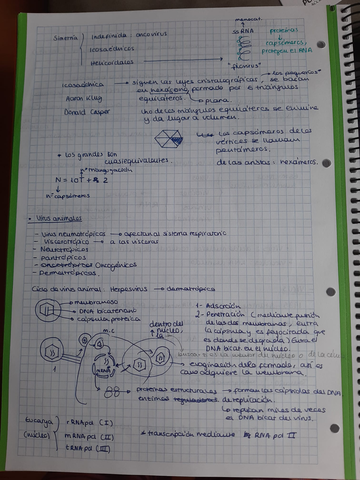 manecal
Simetría
Indefinida: oncovirus
Icosaédricos
Helicoidales
ssRNA
proteínas
capsómeros,
protegen el RNA
"flavirus"
"los pequeños"
Icosaédrica → siguen las leyes cristalográficas, se basan
en hexágono formado por 6 triángulos
equiláteros → plana
Aaron Klug
Donald Casper
Uno de los triángulos equiláteros se elimina
y da lugar a volumen
Los capsómeros de los
vértices se llaman
pentámeros,
de las aristas = hexámeros.
• Los grandes son
cuasiequivalentes
nº triangulación
N = 10T + 2
nº capsómeros
• Virus animales
- Virus neumotrópicos → afectan al sistema respiratorio
- Viscerotrópico → a las vísceras
- Neurotrópicos
- Pantrópicos
- Oncogénicos
- Dermatrópicos
Ciclo de virus animal: Herpesvirus → dermatrópicos
membranoso
DNA bicatenario
cápsula proteica
m.c
dentro del
núcleo.
1- Adsorción
2- Penetración (mediante fusión
de las dos membranas, entra
la cápsula y es fagocitada que
es donde se degrada) Entra el
DNA bicat en el núcleo.
exaginación deformado, así es
como adquiere la membrana.
proteínas estructurales → forman las cápsidas del DNA
enzimas de replicación.
replican miles de veces
el DNA bicat del virus.
Eucarya
(núcleo)
rRNA pol (I)
mRNA pol (II)
tRNA pol (III)
* transcripción mediante RNA pol II